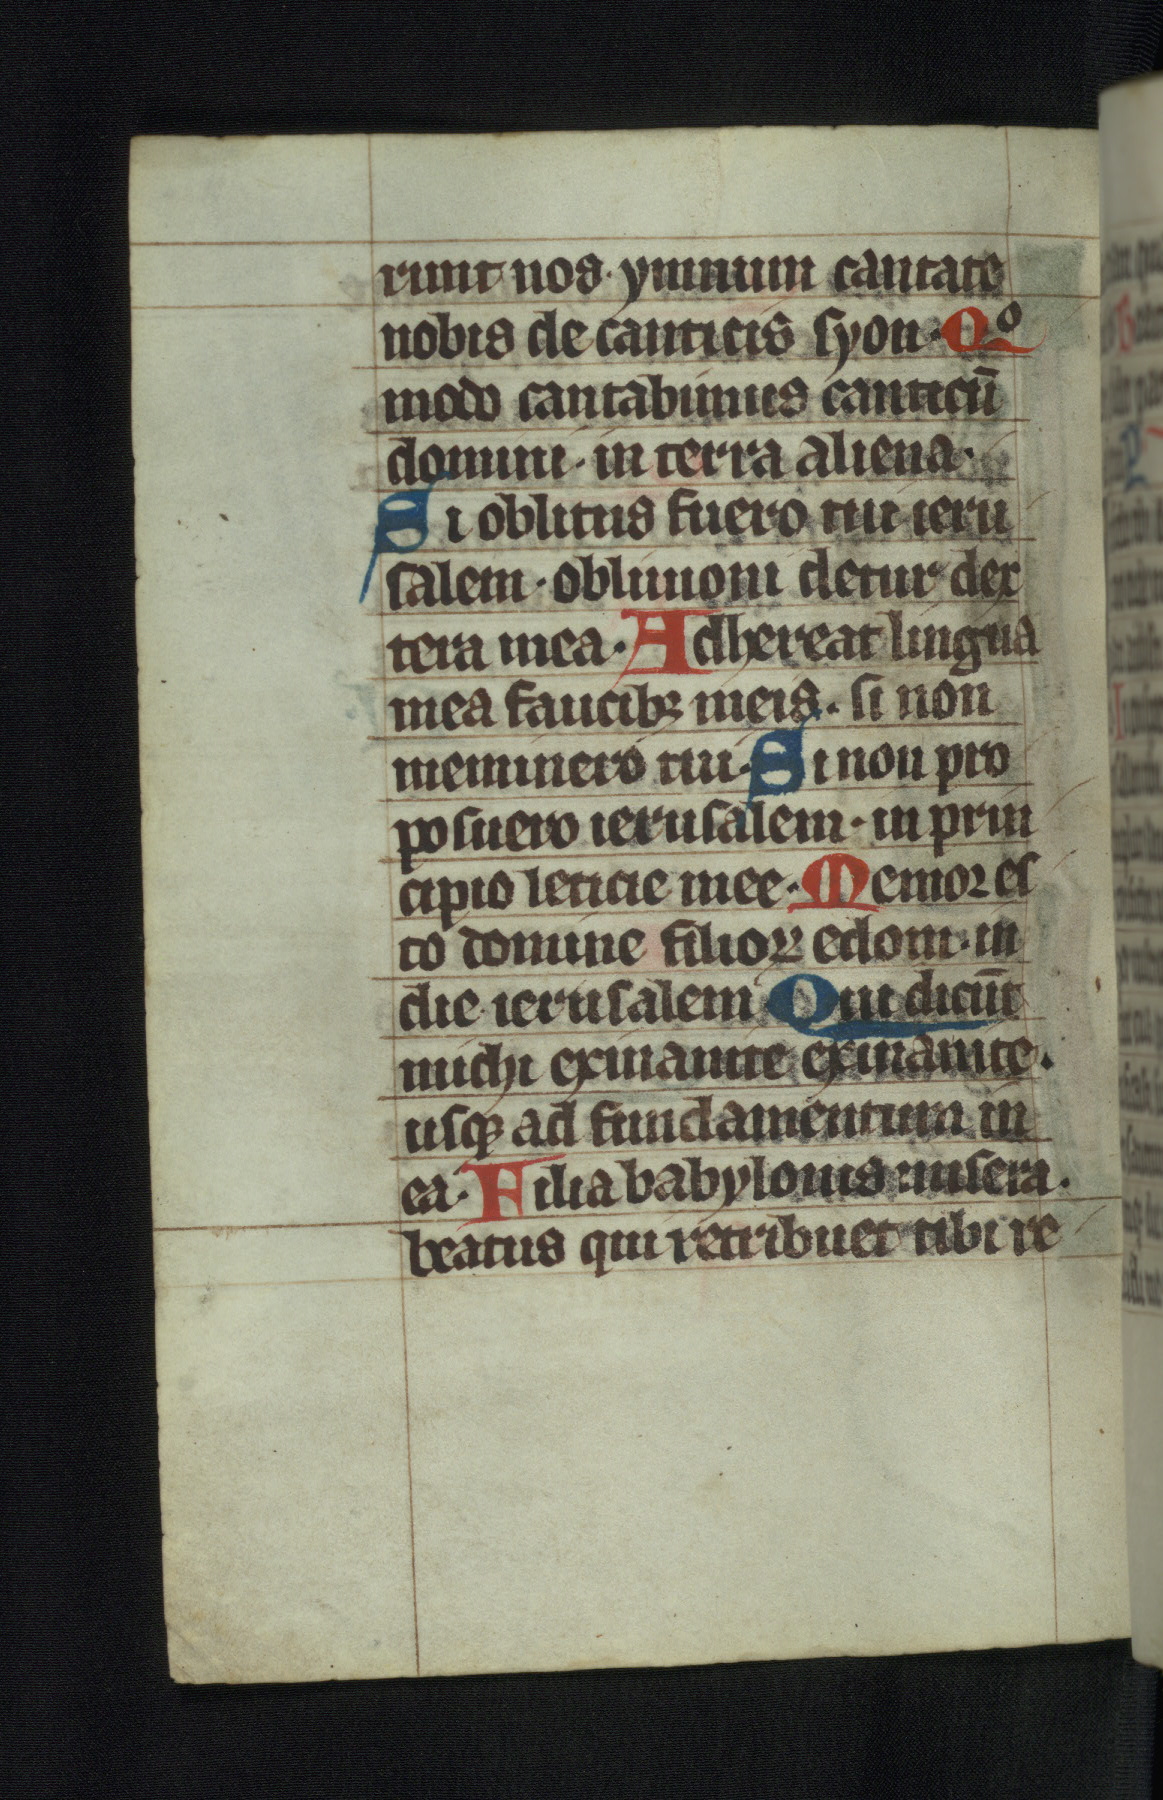 runt nos· ymnum cantate
nobis de canticis syon· Qͦ
modo cantabimus canticū
domini· in terra aliena·
Si oblitus fuero tui ieru
salem· obliuioni detur dex
tera mea· Adhereat lingua
mea faucibꝫ meis· si non
meminero tui· Si non pro
posuero ierusalem· in prin
cipio leticie mee· Memor es
to domine filioꝝ edom· in
die ierusalem Qui dicūt
michi exinanite exinanite·
usqꝫ ad fundamentum in
ea· Filia babylonis misera·
beatus qui retribuet tibi re